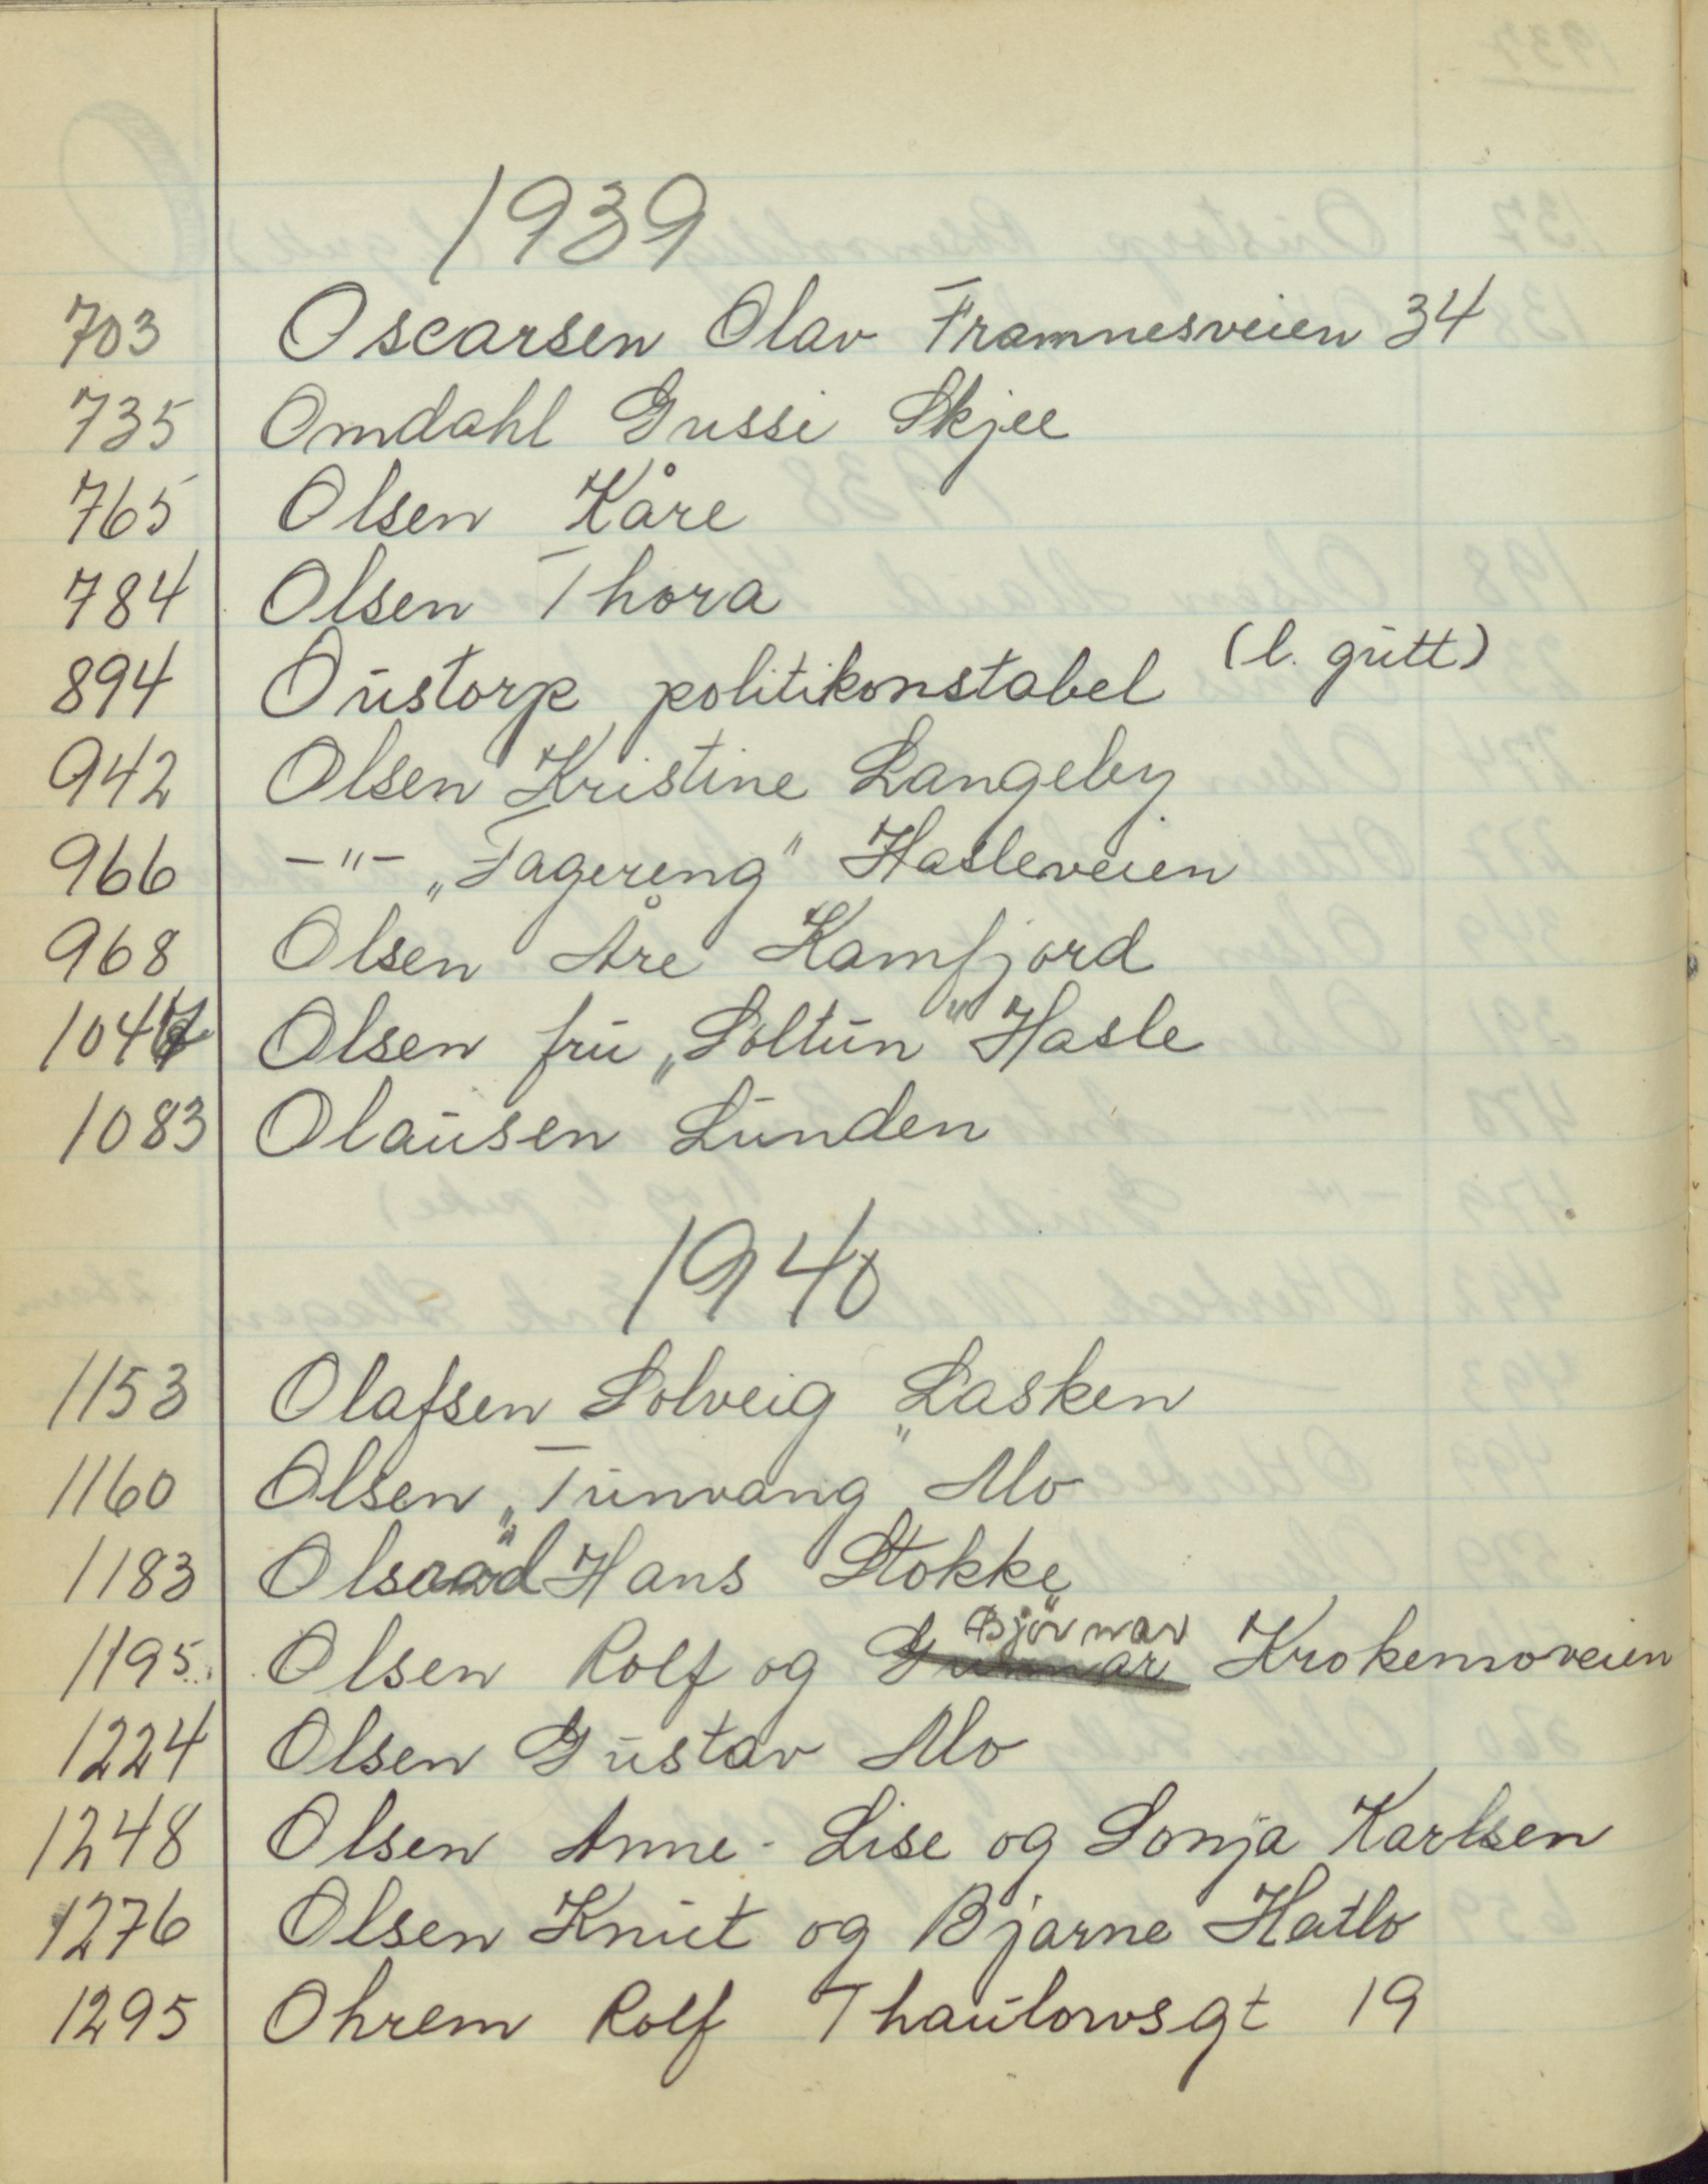 1939
703 Oscarsen Olav Framnesveien 34
735 Omdahl Gussi Skjee
765 Olsen Kåre
784 Olsen Thora
894 Oustorp politikonstabel (l. gutt)
942 Olsen Kristine Langeby
966 -"- „Fagereng" Hasleveien
968 Olsen Åre Kamfjord
1047 Olsen fru „Soltun" Hasle
1083 Olausen Lunden
1940
1153 Olafsen Solveig „Lasken
1160 Olsen „Tunvang" Mo
1183 Olsrød Hans Stokke
1195 Olsen Rolf og Gunnar Bjørnar Krokemoveien
1224 Olsen Gustav Mo
1248 Olsen Anne-Lise og Sonja Karlsen
1276 Olsen Knut og Bjarne Hatlo
1295 Ohrem Rolf Thaulowsgt 19